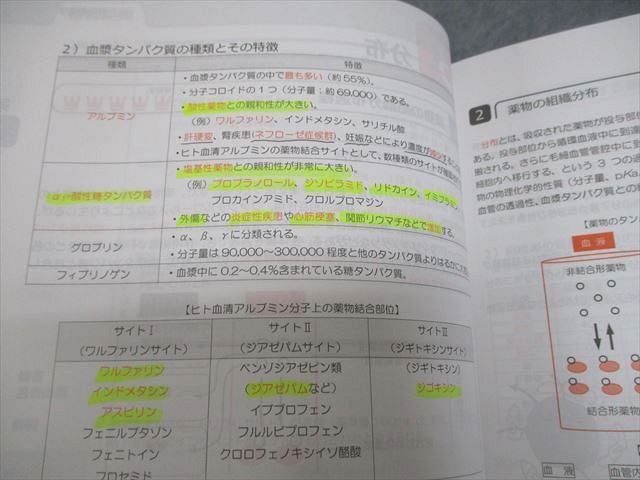 2）血漿タンパク質の種類とその特徴
種類
特徴
アルブミン
・血漿タンパク質の中で最も多い（約55%）。
・分子コロイドの1つ（分子量：約69,000）である。
・酸性薬物との親和性が大きい。
（例）ワルファリン、インドメタシン、サリチル酸
・肝硬変、腎疾患（ネフローゼ症候群）、妊娠などにより濃度が減少する
・ヒト血清アルブミンの薬物結合サイトとして、数種類のサイトが
α₁-酸性糖タンパク質
・塩基性薬物との親和性が非常に大きい。
（例）プロプラノロール、ジソピラミド、リドカイン、イミプラミン、
プロカインアミド、クロルプロマジン
・外傷などの炎症性疾患や心筋梗塞、関節リウマチなどで増加する。
グロブリン
・α、β、γに分類される。
・分子量は90,000〜300,000程度と他のタンパク質よりはるかに
フィブリノゲン
・血漿中に0.2〜0.4%含まれている糖タンパク質。
【ヒト血清アルブミン分子上の薬物結合部位】
サイトⅠ
（ワルファリンサイト）
サイトⅡ
（ジアゼパムサイト）
サイトⅢ
（ジギトキシンサイト）
ワルファリン
インドメタシン
アスピリン
フェニルブタゾン
フェニトイン
フロセミド
ベンゾジアゼピン類
（ジアゼパムなど）
イブプロフェン
フルルビプロフェン
クロロフェノキシイソ酪酸
（ジギトキシン）
ジゴキシン
分布
2
薬物の組織分布
分布とは、吸収された薬物が投与部位
ある。投与部位から循環血液中に到達
搬される。さらに毛細血管壁中に到
細胞内へ移行する、という3つの過
物の物理化学的性質（分子量、pKa、
血管の透過性、血漿タンパク質との
【薬物のタン
血液
非結合形薬物
結合形薬物
血液
血管内